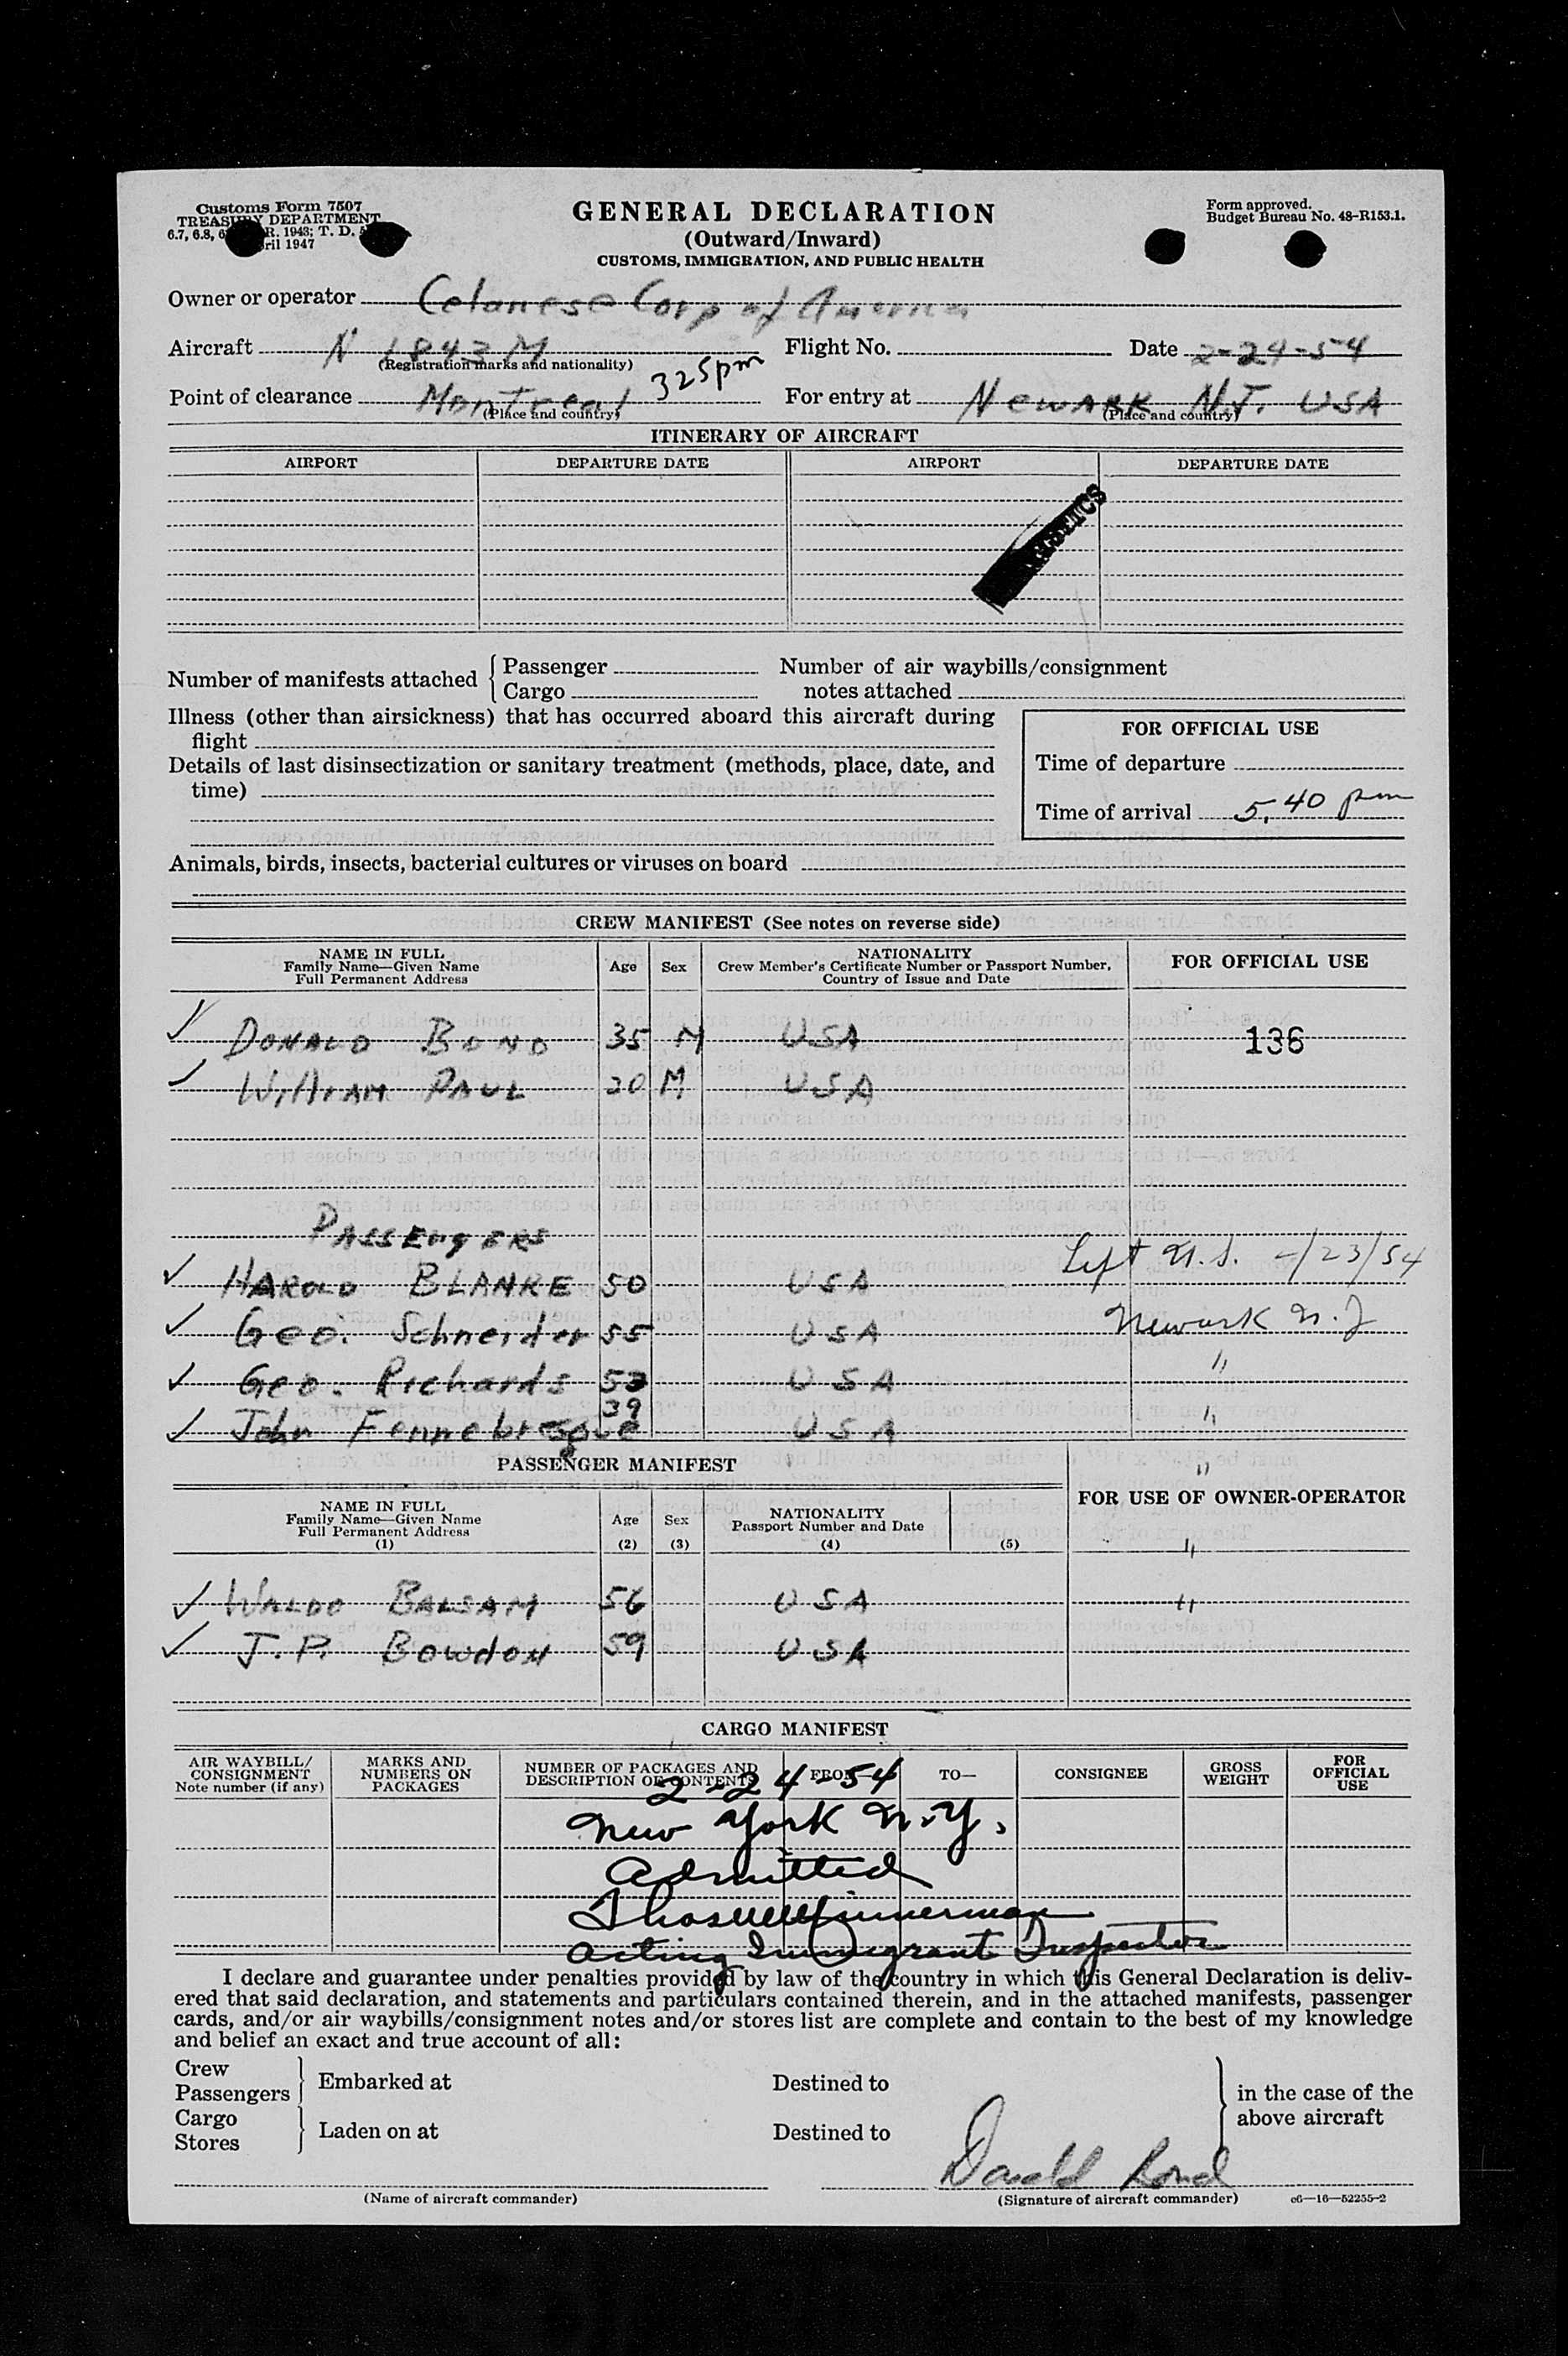 Customs Form 7507
TREASURY DEPARTMENT
6.7, 6.8, R. 1943; T. D.
ril 1947
GENERAL DECLARATION
(Outward/Inward)
CUSTOMS, IMMIGRATION, AND PUBLIC HEALTH
Form approved.
Budget Bureau No. 48-R153.1.
Owner or operator Celanese Corp of America
Aircraft N 1843M Flight No. Date 2-24-54
(Registration marks and nationality)
325pm
Point of clearance Montreal For entry at Newark N.J. USA
(Place and country) (Place and country)
ITINERARY OF AIRCRAFT
AIRPORT DEPARTURE DATE AIRPORT DEPARTURE DATE
Number of manifests attached { Passenger Number of air waybills/consignment
Cargo notes attached
Illness (other than airsickness) that has occurred aboard this aircraft during
flight
Details of last disinsectization or sanitary treatment (methods, place, date, and
time)
FOR OFFICIAL USE
Time of departure
Time of arrival 5,40 pm
Animals, birds, insects, bacterial cultures or viruses on board
CREW MANIFEST (See notes on reverse side)
NAME IN FULL
Family Name—Given Name
Full Permanent Address
Age Sex
NATIONALITY
Crew Member's Certificate Number or Passport Number,
Country of Issue and Date
FOR OFFICIAL USE
✓ DONALD BOND 35 M USA 136
✓ William PAUL 20 M USA
PASSENGERS
✓ HAROLD BLANKE 50 USA Left U.S. -/23/54
✓ Geo. Schneider 55 USA Newark N.J
✓ Geo. Richards 53 USA "
✓ John Fennebresque 39 USA "
PASSENGER MANIFEST
"
NAME IN FULL
Family Name—Given Name
Full Permanent Address
(1)
Age
(2)
Sex
(3)
NATIONALITY
Passport Number and Date
(4) (5)
FOR USE OF OWNER-OPERATOR
"
✓ WALDO BALSAM 56 USA "
✓ J.P. Bowdon 59 USA
CARGO MANIFEST
AIR WAYBILL/
CONSIGNMENT
Note number (if any)
MARKS AND
NUMBERS ON
PACKAGES
NUMBER OF PACKAGES AND
DESCRIPTION OF CONTENTS
FROM— TO— CONSIGNEE
GROSS
WEIGHT
FOR
OFFICIAL
USE
2-24-54
New York N.Y.,
Admitted
Thos Zimmerman
Acting Immigrant Inspector
I declare and guarantee under penalties provided by law of the country in which this General Declaration is deliv-
ered that said declaration, and statements and particulars contained therein, and in the attached manifests, passenger
cards, and/or air waybills/consignment notes and/or stores list are complete and contain to the best of my knowledge
and belief an exact and true account of all:
Crew
Passengers } Embarked at Destined to
Cargo
Stores } Laden on at Destined to
} in the case of the
above aircraft
Donald Bond
(Name of aircraft commander) (Signature of aircraft commander) c6—16—52255-2